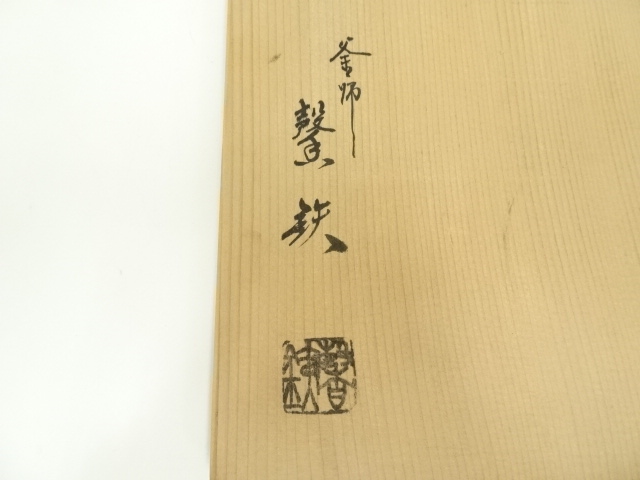 釜師
馨鉄